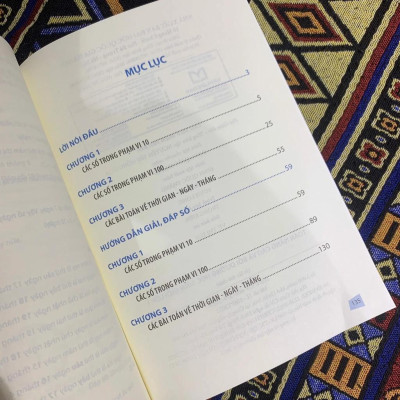 MỤC LỤC
LỜI NÓI ĐẦU 3
CHƯƠNG 1
CÁC SỐ TRONG PHẠM VI 10 5
CHƯƠNG 2
CÁC SỐ TRONG PHẠM VI 100 25
CHƯƠNG 3
CÁC BÀI TOÁN VỀ THỜI GIAN - NGÀY - THÁNG 55
HƯỚNG DẪN GIẢI, ĐÁP SỐ 59
CHƯƠNG 1
CÁC SỐ TRONG PHẠM VI 10 59
CHƯƠNG 2
CÁC SỐ TRONG PHẠM VI 100 89
CHƯƠNG 3
CÁC BÀI TOÁN VỀ THỜI GIAN - NGÀY - THÁNG 130